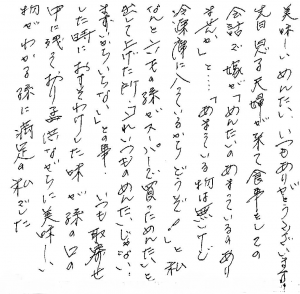 美味しいめんたい、いつもありがとうございます。
先日息子夫婦が来て食事をしての
会話で嫁が「めんたいのあまっているのあり
ませんか」と…「あまっている物は無いけど
冷凍庫に入っているからどうぞ!」と私
なんと六才の孫がスーパーで買っためんたいを
出して上げた所「これいつものめんたいじゃない
まずいからいらない」との事! いつも取寄せ
した時におすそわけした味が孫の口の
中に残っており 乍らに美味しい
物がわかる孫に満足の私でした